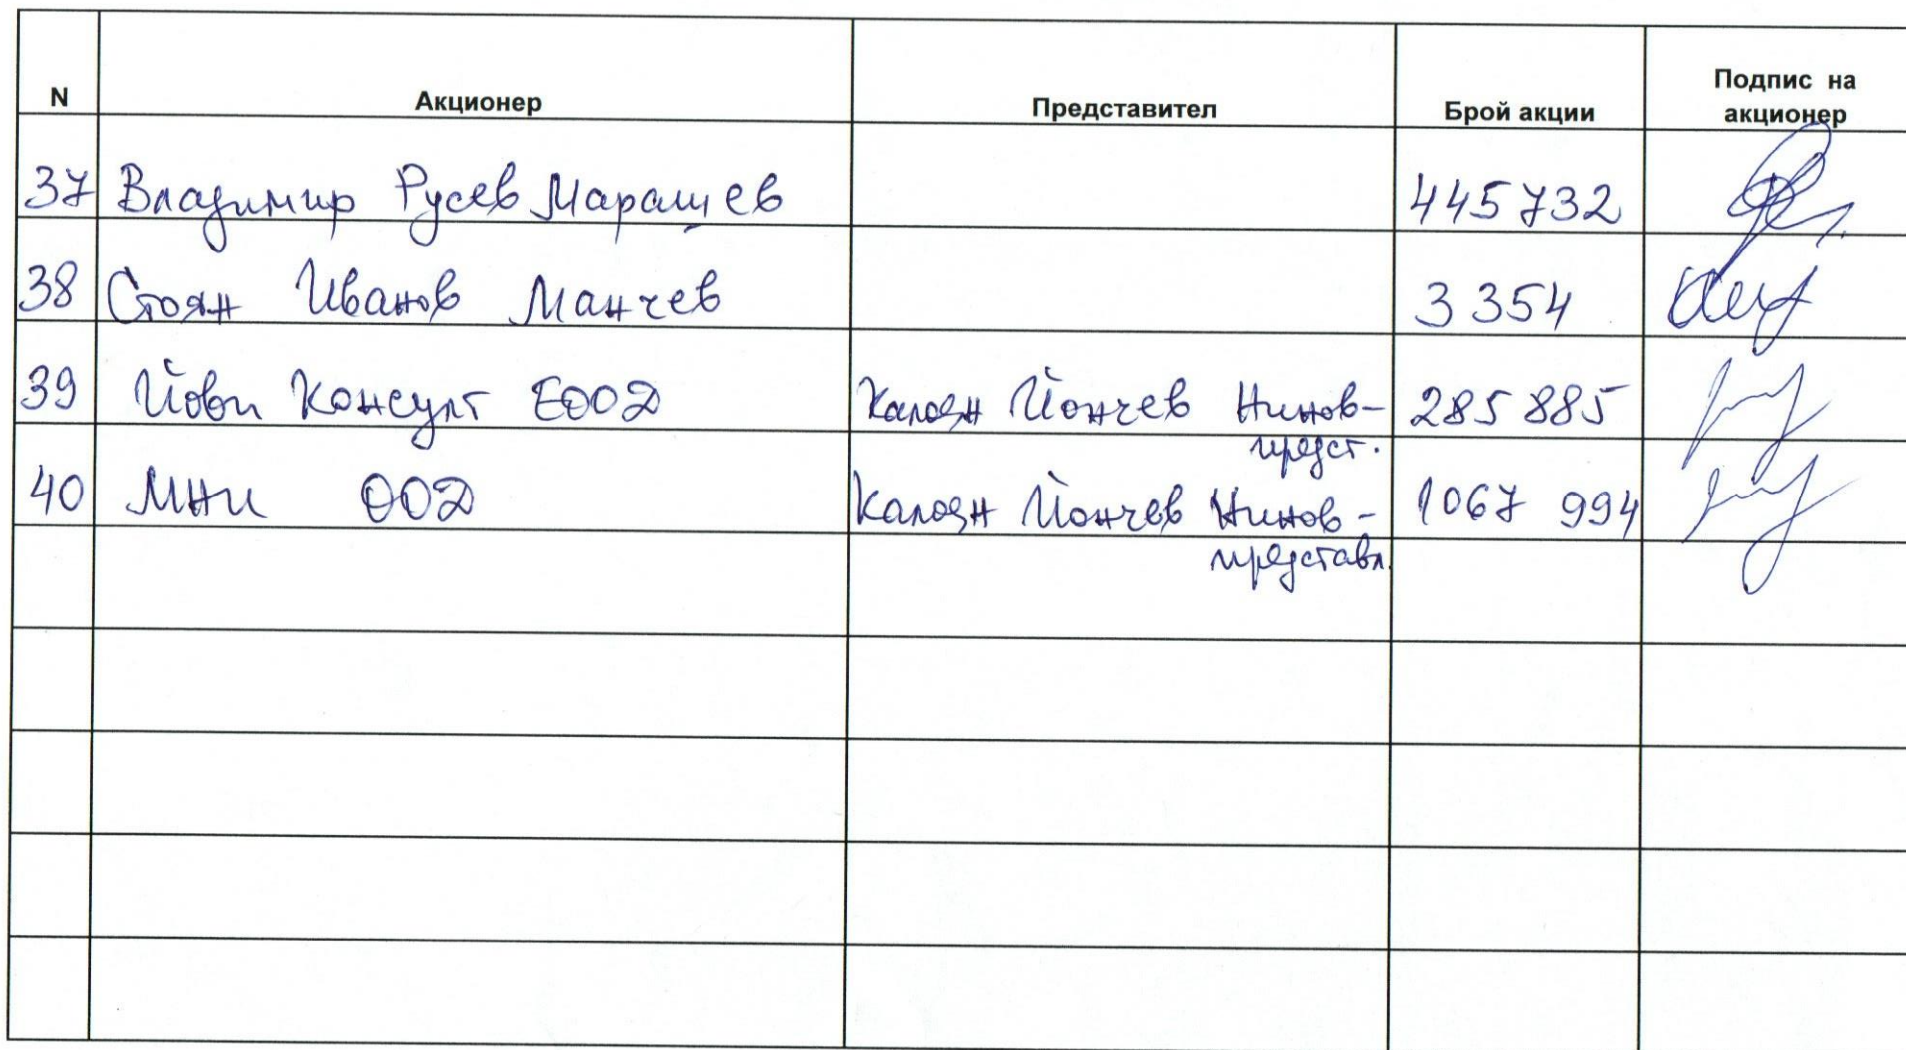 N Акционер Представител Брой акции Подпис на акционер
37 Владимир Русев Маращев 445732
38 Стоян Иванов Манчев 3 354
39 Йови Консулт ЕООД Калоян Йончев Нинов- 285 885
предст.
40 МНИ ООД Калоян Йончев Нинов- 1067 994
представл.